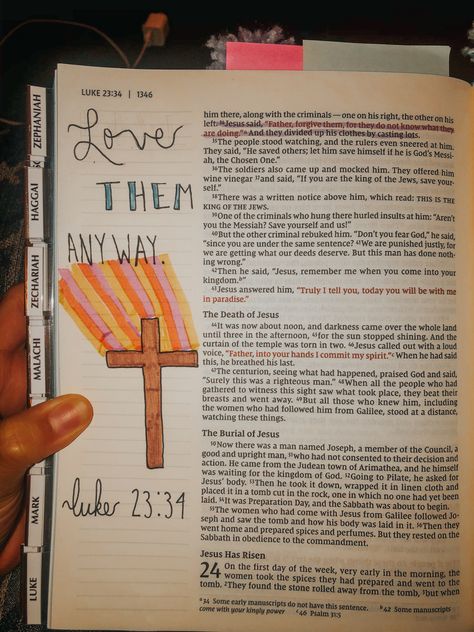 ZEPHANIAH
HAGGAI
ZECHARIAH
MALACHI
MARK
LUKE
LUKE 23:34 | 1346
Love
THEM
ANYWAY.
Luke 23:34
him there, along with the criminals — one on his right, the other on his
left. 34 Jesus said, "Father, forgive them, for they do not know what they
are doing." a And they divided up his clothes by casting lots.
35 The people stood watching, and the rulers even sneered at him.
They said, "He saved others; let him save himself if he is God's Messi-
ah, the Chosen One."
36 The soldiers also came up and mocked him. They offered him
wine vinegar 37 and said, "If you are the king of the Jews, save your-
self."
38 There was a written notice above him, which read: THIS IS THE
KING OF THE JEWS.
39 One of the criminals who hung there hurled insults at him: "Aren't
you the Messiah? Save yourself and us!"
40 But the other criminal rebuked him. "Don't you fear God," he said,
"since you are under the same sentence? 41 We are punished justly, for
we are getting what our deeds deserve. But this man has done noth-
ing wrong."
42 Then he said, "Jesus, remember me when you come into your
kingdom. b"
43 Jesus answered him, "Truly I tell you, today you will be with me
in paradise."
The Death of Jesus
44 It was now about noon, and darkness came over the whole land
until three in the afternoon, 45 for the sun stopped shining. And the
curtain of the temple was torn in two. 46 Jesus called out with a loud
voice, "Father, into your hands I commit my spirit." c When he had said
this, he breathed his last.
47 The centurion, seeing what had happened, praised God and said,
"Surely this was a righteous man." 48 When all the people who had
gathered to witness this sight saw what took place, they beat their
breasts and went away. 49 But all those who knew him, including
the women who had followed him from Galilee, stood at a distance,
watching these things.
The Burial of Jesus
50 Now there was a man named Joseph, a member of the Council, a
good and upright man, 51 who had not consented to their decision and
action. He came from the Judean town of Arimathea, and he himself
was waiting for the kingdom of God. 52 Going to Pilate, he asked for
Jesus' body. 53 Then he took it down, wrapped it in linen cloth and
placed it in a tomb cut in the rock, one in which no one had yet been
laid. 54 It was Preparation Day, and the Sabbath was about to begin.
55 The women who had come with Jesus from Galilee followed Jo-
seph and saw the tomb and how his body was laid in it. 56 Then they
went home and prepared spices and perfumes. But they rested on the
Sabbath in obedience to the commandment.
Jesus Has Risen
24 On the first day of the week, very early in the morning, the
women took the spices they had prepared and went to the
tomb. 2 They found the stone rolled away from the tomb, 3 but when
a 34 Some early manuscripts do not have this sentence. b 42 Some manuscripts
come with your kingly power c 46 Psalm 31:5